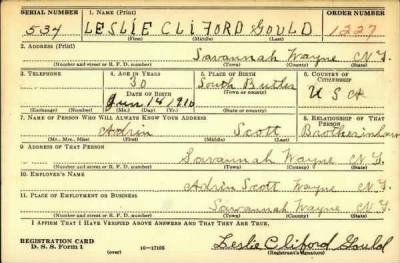 SERIAL NUMBER 1. NAME (Print) ORDER NUMBER
534 LESLIE CLIFORD GOULD 1227
(First) (Middle) (Last)
2. ADDRESS (Print)
Savannah Wayne N.Y.
(Number and street or R. F. D. number) (Town) (County) (State)
3. TELEPHONE 4. AGE IN YEARS 5. PLACE OF BIRTH 6. COUNTRY OF CITIZENSHIP
30 South Butler
DATE OF BIRTH (Town or county) U S A
Jun 14 1910
(Exchange) (Number) (Mo.) (Day) (Yr.) (State or country)
7. NAME OF PERSON WHO WILL ALWAYS KNOW YOUR ADDRESS 8. RELATIONSHIP OF THAT PERSON
Adrin Scott Brotherinlaw
(Mr., Mrs., Miss) (First) (Middle) (Last)
9. ADDRESS OF THAT PERSON
Savannah Wayne N.Y.
(Number and street or R. F. D. number) (Town) (County) (State)
10. EMPLOYER'S NAME
Adrin Scott Wayne N.Y.
11. PLACE OF EMPLOYMENT OR BUSINESS
Savannah Wayne N.Y.
(Number and street or R. F. D. number) (Town) (County) (State)
I AFFIRM THAT I HAVE VERIFIED ABOVE ANSWERS AND THAT THEY ARE TRUE.
REGISTRATION CARD
D. S. S. Form 1 (over) 16-17105 Leslie Cliford Gould
(Registrant's signature)